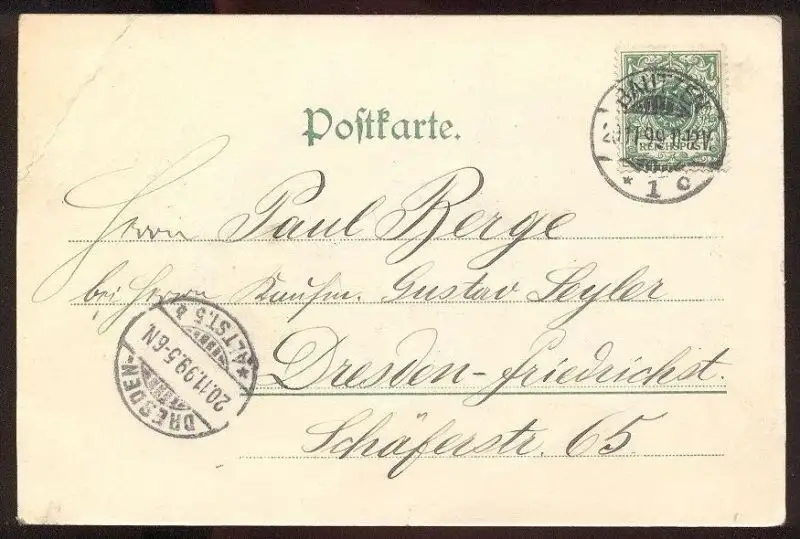 Postkarte.
BAUTZEN
20.11.99.11-12V.
REICHSPOST
* 1 c
Herrn Paul Berge
bei Herrn Kaufm. Gustav Seyler
Dresden-Friedrichst.
Schäferstr. 65.
DRESDEN-
ALTST. 5 b
20.11.99.5-6N.